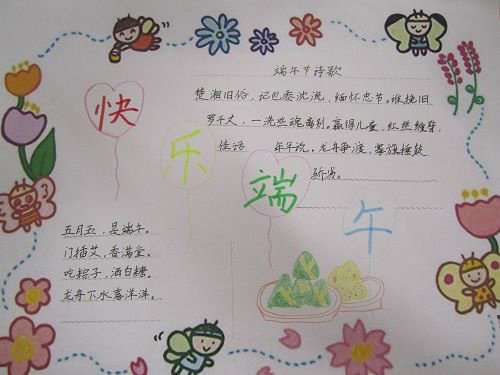 快
乐
端
午
端午节诗歌
楚湘旧俗，记包黍沈流，缅怀忠节。谁挽汨
罗千丈，一洗些魂离别。赢得儿童，红丝缠臂，
佳话年年说。龙舟争渡，搴旗捶鼓
骄劣。
五月五，是端午。
门插艾，香满堂。
吃粽子，洒白糖。
龙舟下水喜洋洋。